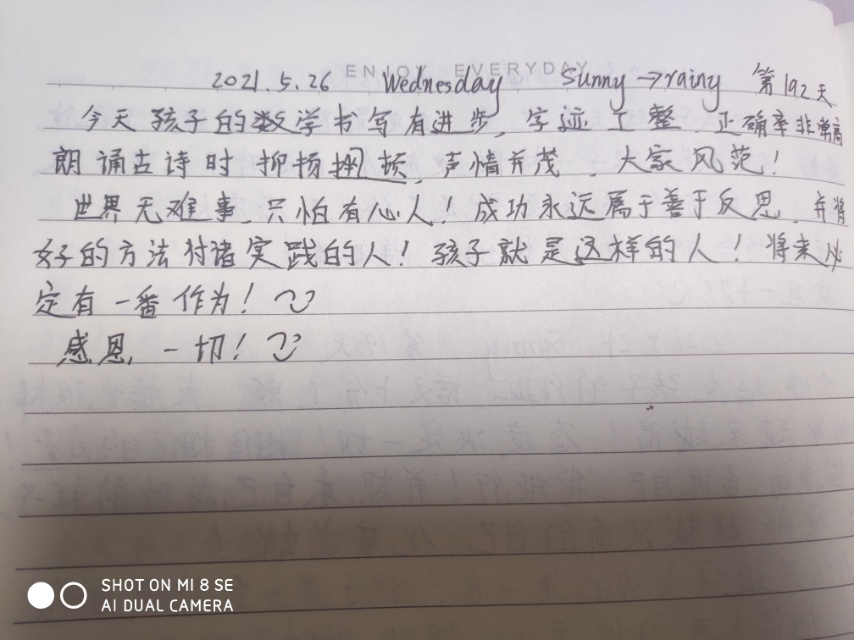 ENJOY EVERYDAY
2021.5.26 Wednesday Sunny→rainy 第192天
今天孩子的数学书写有进步,字迹工整,正确率非常高
朗诵古诗时抑扬挫顿,声情并茂,大家风范!
世界无难事,只怕有心人!成功永远属于善于反思,并将
好的方法付诸实践的人!孩子就是这样的人!将来必
定有一番作为!
感恩一切!
SHOT ON MI 8 SE
AI DUAL CAMERA